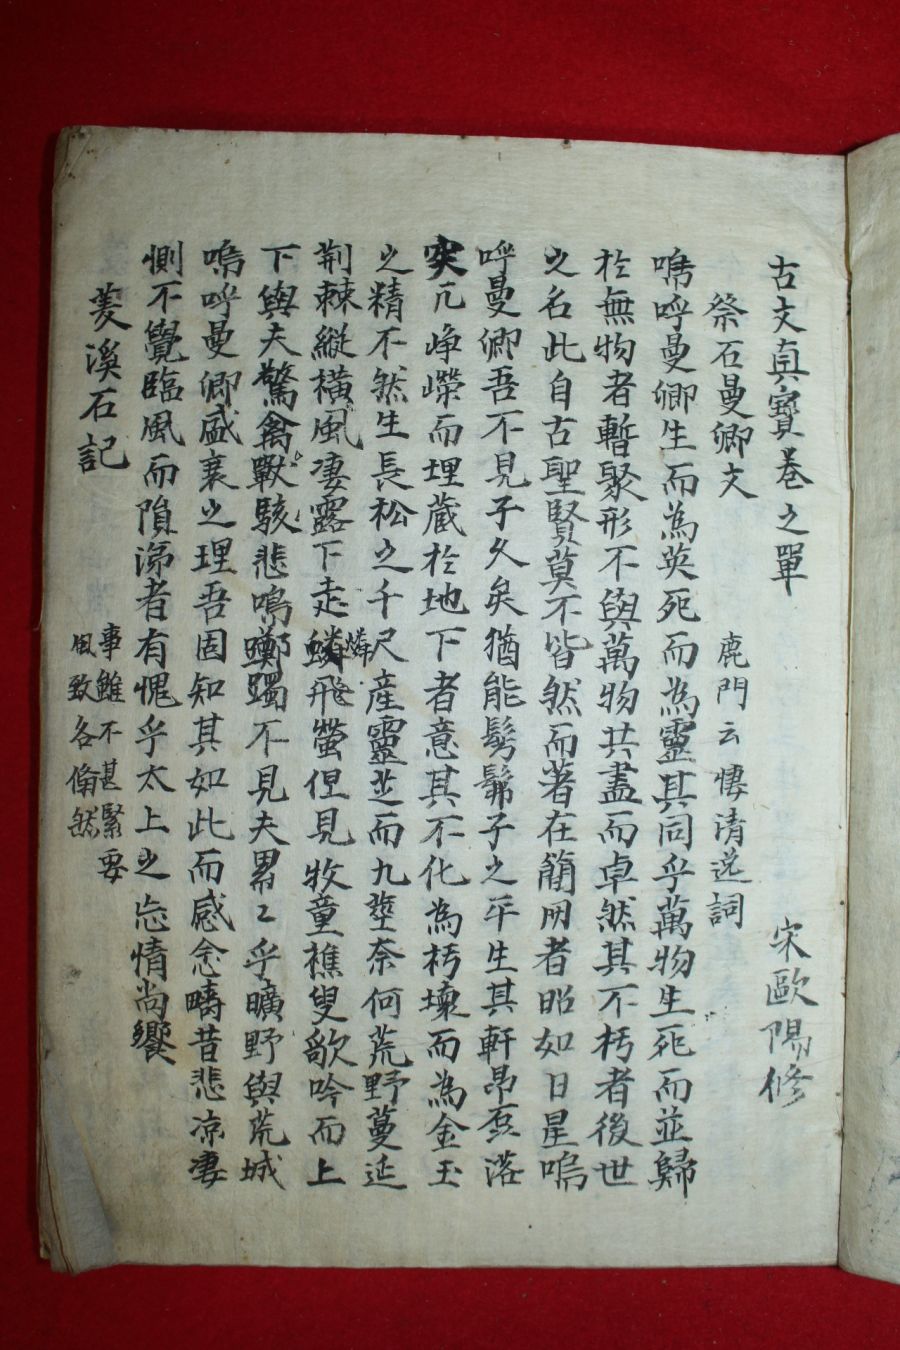 古文真寶卷之單 宋歐陽修
祭石曼卿文 鹿門云悽清逸詞
嗚呼曼卿生而為英死而為靈其同乎萬物生死而並歸
於無物者暫聚形不與萬物共盡而卓然其不朽者後世
之名此自古聖賢莫不皆然而著在簡冊者昭如日星嗚
呼曼卿吾不見子久矣猶能髣髴子之平生其軒昂磊落
突兀崢嶸而埋藏於地下者意其不化為朽壞而為金玉
之精不然生長松之千尺產靈芝而九莖奈何荒野蔓延
荆棘縱橫風凄露下走蟒飛螢但見牧童樵叟歌吟而上
燐
下與夫驚禽獸駭悲鳴躑躅不見夫累〻乎曠野與荒城
嗚呼曼卿盛衰之理吾固知其如此而感念疇昔悲凉凄
惻不覺臨風而隕涕者有愧乎太上之忘情尚饗
菱溪石記 事雖不甚緊要
風致各翛然